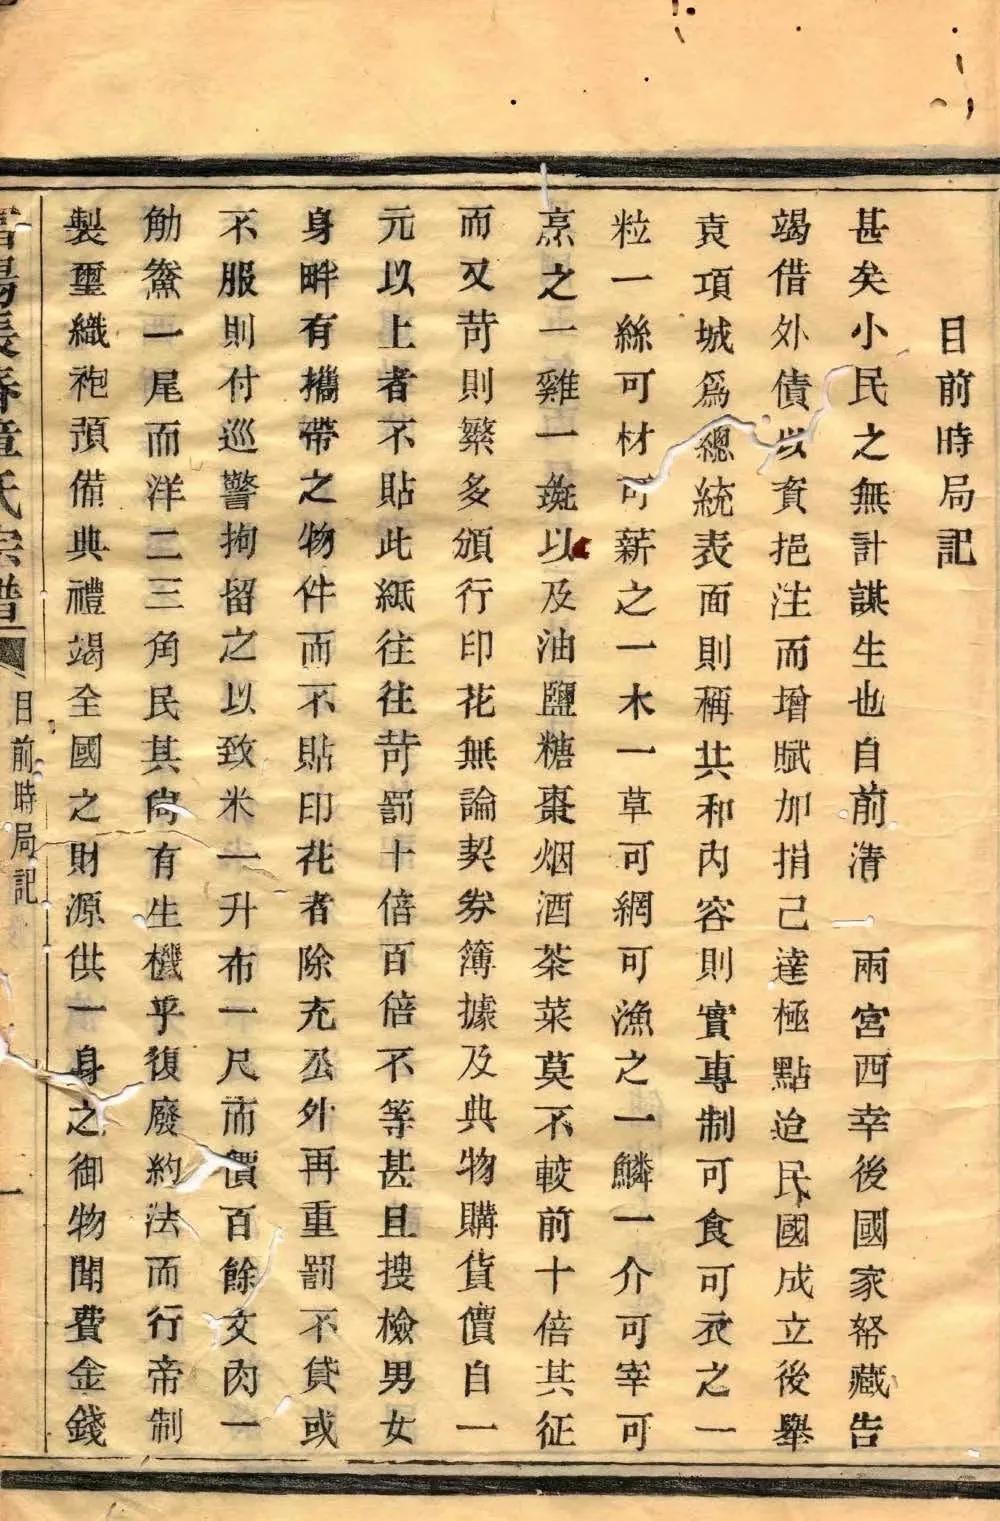 目前時局記
甚矣小民之無計謀生也自前清 兩宮西幸後國家帑藏告
竭借外債以資挹注而增賦加捐己達極點迨民國成立後舉
袁項城爲總統表面則稱共和內容則實專制可食可衣之一
粒一絲可材可薪之一木一草可網可漁之一鱗一介可宰可
烹之一雞一彘以及油鹽糖棗烟酒茶菜莫不較前十倍其征
而又苛則繁多頒行印花無論契券簿據及典物購貨價自一
元以上者不貼此紙往往苛罰十倍百倍不等甚且搜檢男女
身畔有攜帶之物件而不貼印花者除充公外再重罰不貸或
不服則付巡警拘留之以致米一升布一尺而價百餘文肉一
觔鮝一尾而洋二三角民其尙有生機乎復廢約法而行帝制
製璽織袍預備典禮竭全國之財源供一身之御物聞費金錢
富陽長春章氏宗譜 目前時局記 一